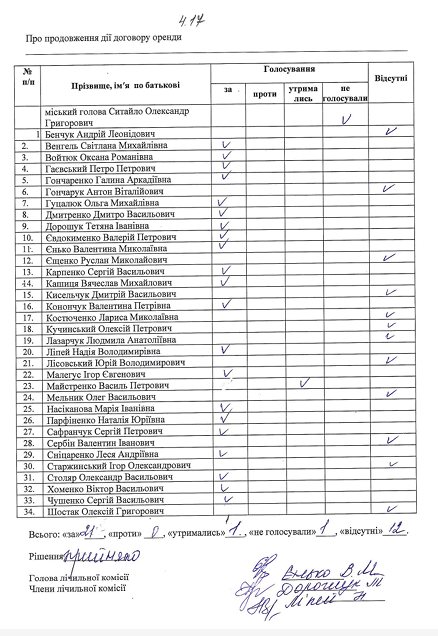 4.17
Про продовження дії договору оренди
№ п/п Прізвище, ім'я по батькові Голосування Відсутні
за проти утрима лись не голосували
міський голова Ситайло Олександр Григорович ✓
1 Бенчук Андрій Леонідович ✓
2. Венгель Світлана Михайлівна ✓
3. Войтюк Оксана Романівна ✓
4. Гаєвський Петро Петрович ✓
5. Гончаренко Галина Аркадіївна ✓
6. Гончарук Антон Віталійович ✓
7. Гуцалюк Ольга Михайлівна ✓
8. Дмитренко Дмитро Васильович ✓
9. Дорощук Тетяна Іванівна ✓
10. Євдокименко Валерій Петрович ✓
11. Єнько Валентина Миколаївна ✓
12. Єщенко Руслан Миколайович ✓
13. Карпенко Сергій Васильович ✓
14. Кашиця Вячеслав Михайлович ✓
15. Кисельчук Дмитрій Васильович ✓
16. Конончук Валентина Петрівна ✓
17. Костюченко Лариса Миколаївна ✓
18. Кучинський Олексій Петрович ✓
19. Лазарчук Людмила Анатоліївна ✓
20. Ліпей Надія Володимирівна ✓
21. Лісовський Юрій Володимирович ✓
22. Малегус Ігор Євгенович ✓
23. Майстренко Василь Петрович ✓
24. Мельник Олег Васильович ✓
25. Насіканова Марія Іванівна ✓
26. Парфіненко Наталія Юріївна ✓
27. Сафранчук Сергій Петрович ✓
28. Сербін Валентин Іванович ✓
29. Сніцаренко Леся Андріївна ✓
30. Старжинський Ігор Олександрович ✓
31. Столяр Олександр Васильович ✓
32. Хоменко Віктор Васильович ✓
33. Чушенко Сергій Васильович ✓
34. Шостак Олексій Григорович ✓
Всього: «за» 21, «проти» 0, «утримались» 1, «не голосували» 1, «відсутні» 12.
Рішення прийнято
Голова лічильної комісії Єнько В.М
Члени лічильної комісії Дорощук Т
Ліпей Н